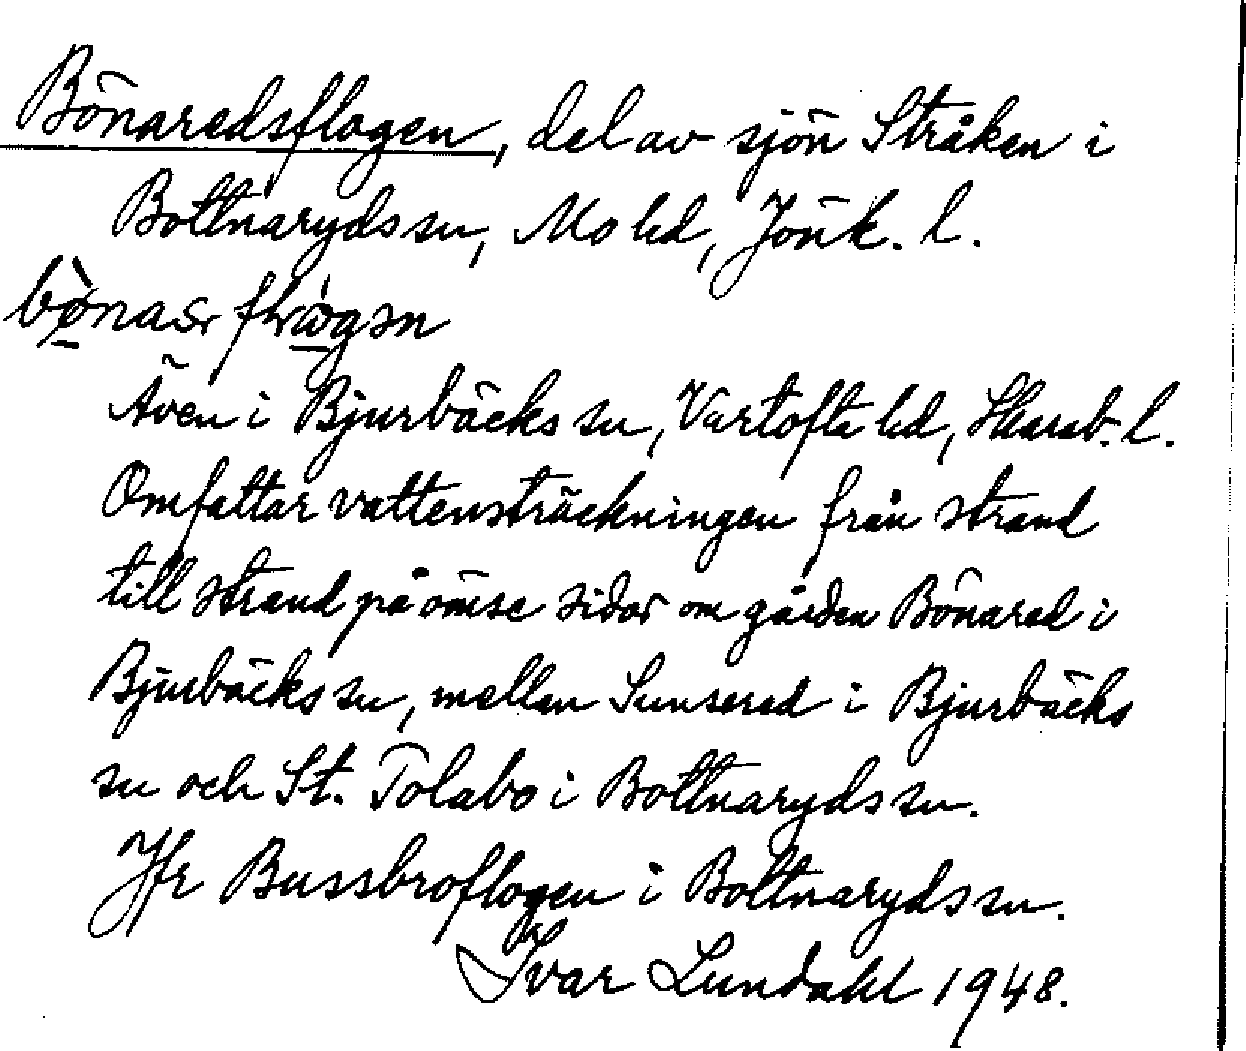 Bönaredsflogen, del av sjön Stråken i
Bottnaryds sn, Mo hd, Jönk. l.
Även i Bjurbäcks sn, Vartofta hd, Skarab. l.
Omfattar vattensträckningen från strand
till strand på ömse sidor om gården Bönared i
Bjurbäcks sn, mellan Sunsered i Bjurbäcks
sn och St. Tolabo i Bottnaryds sn.
Jfr Bussbroflogen i Bottnaryds sn.
Ivar Lundahl 1948.